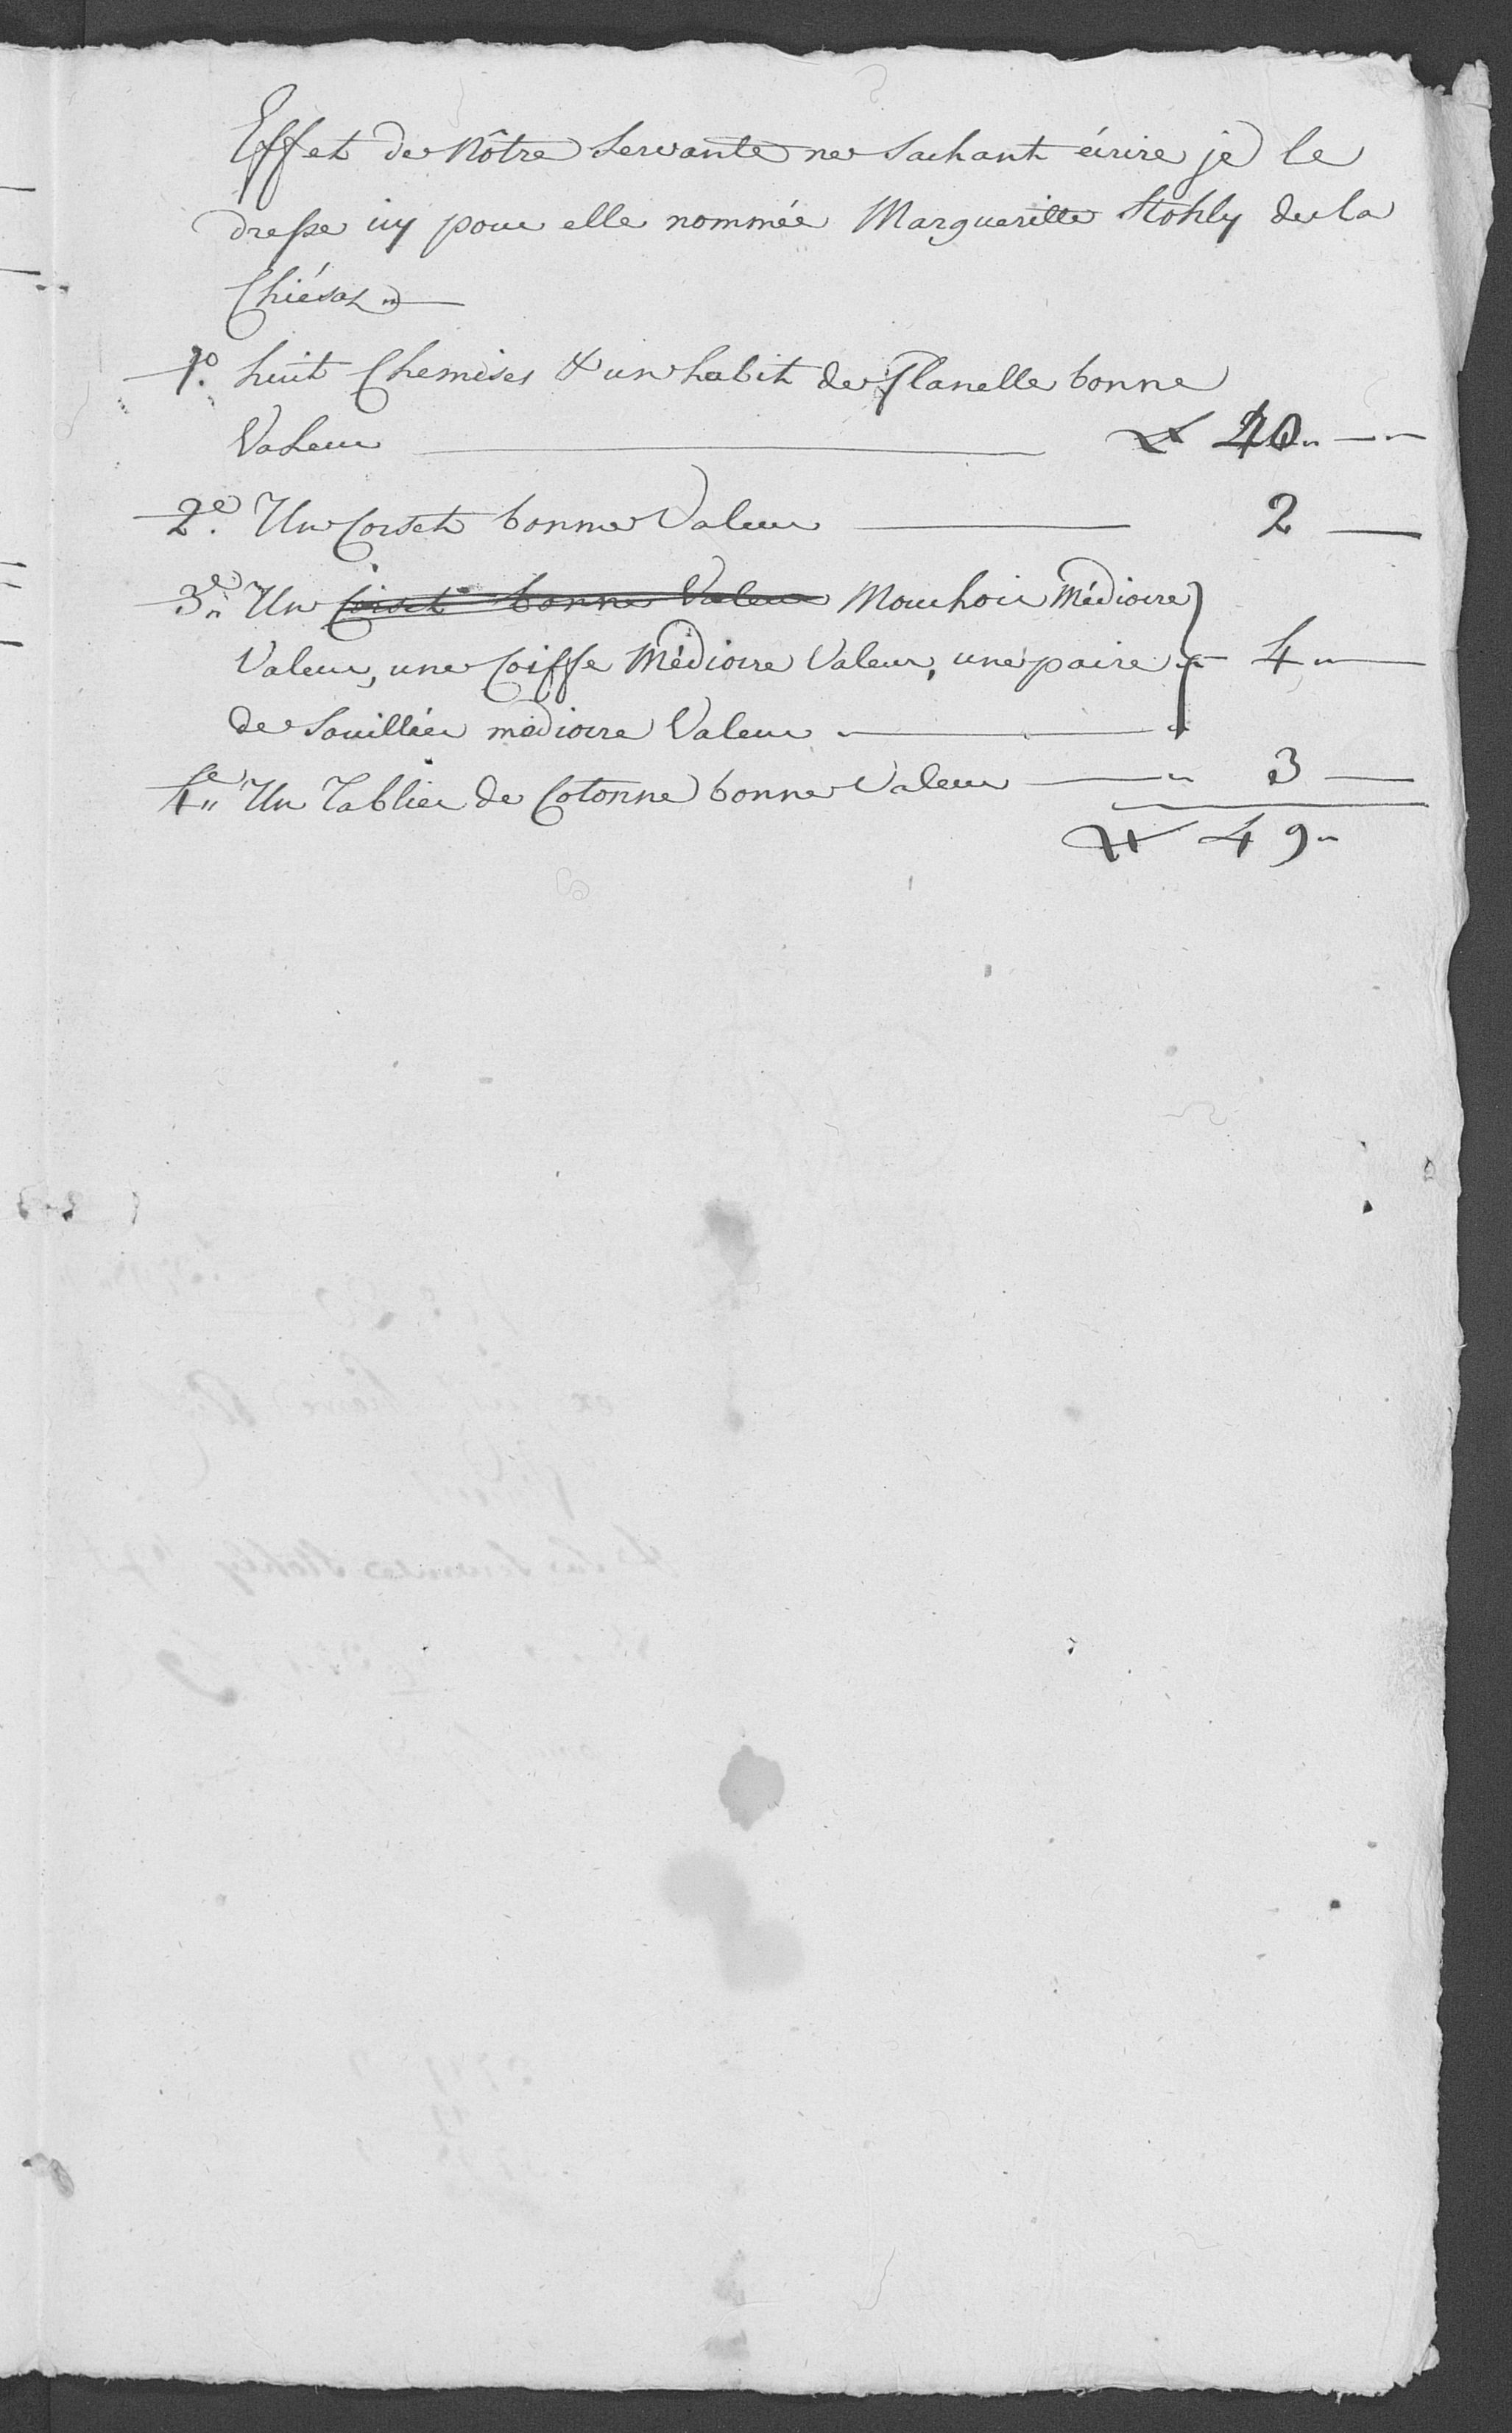 Effet de Nôtre Servante ne Sachant écrire je le
dresse icy pour elle nommée Margueritte Stohly de la
Chiésaz
1º. huit Chemises & un habit de flanelle bonne
Valeur 40
2e. Un Corset bonne Valeur 2
3e. Un Corset bonne Valeur Mouchoir Médiocre
Valeur, une Coiffe Médiocre Valeur, une paire 4
de Souilliér médiocre Valeur
4e Un Tablier de Cotonne bonne Valeur 3
49